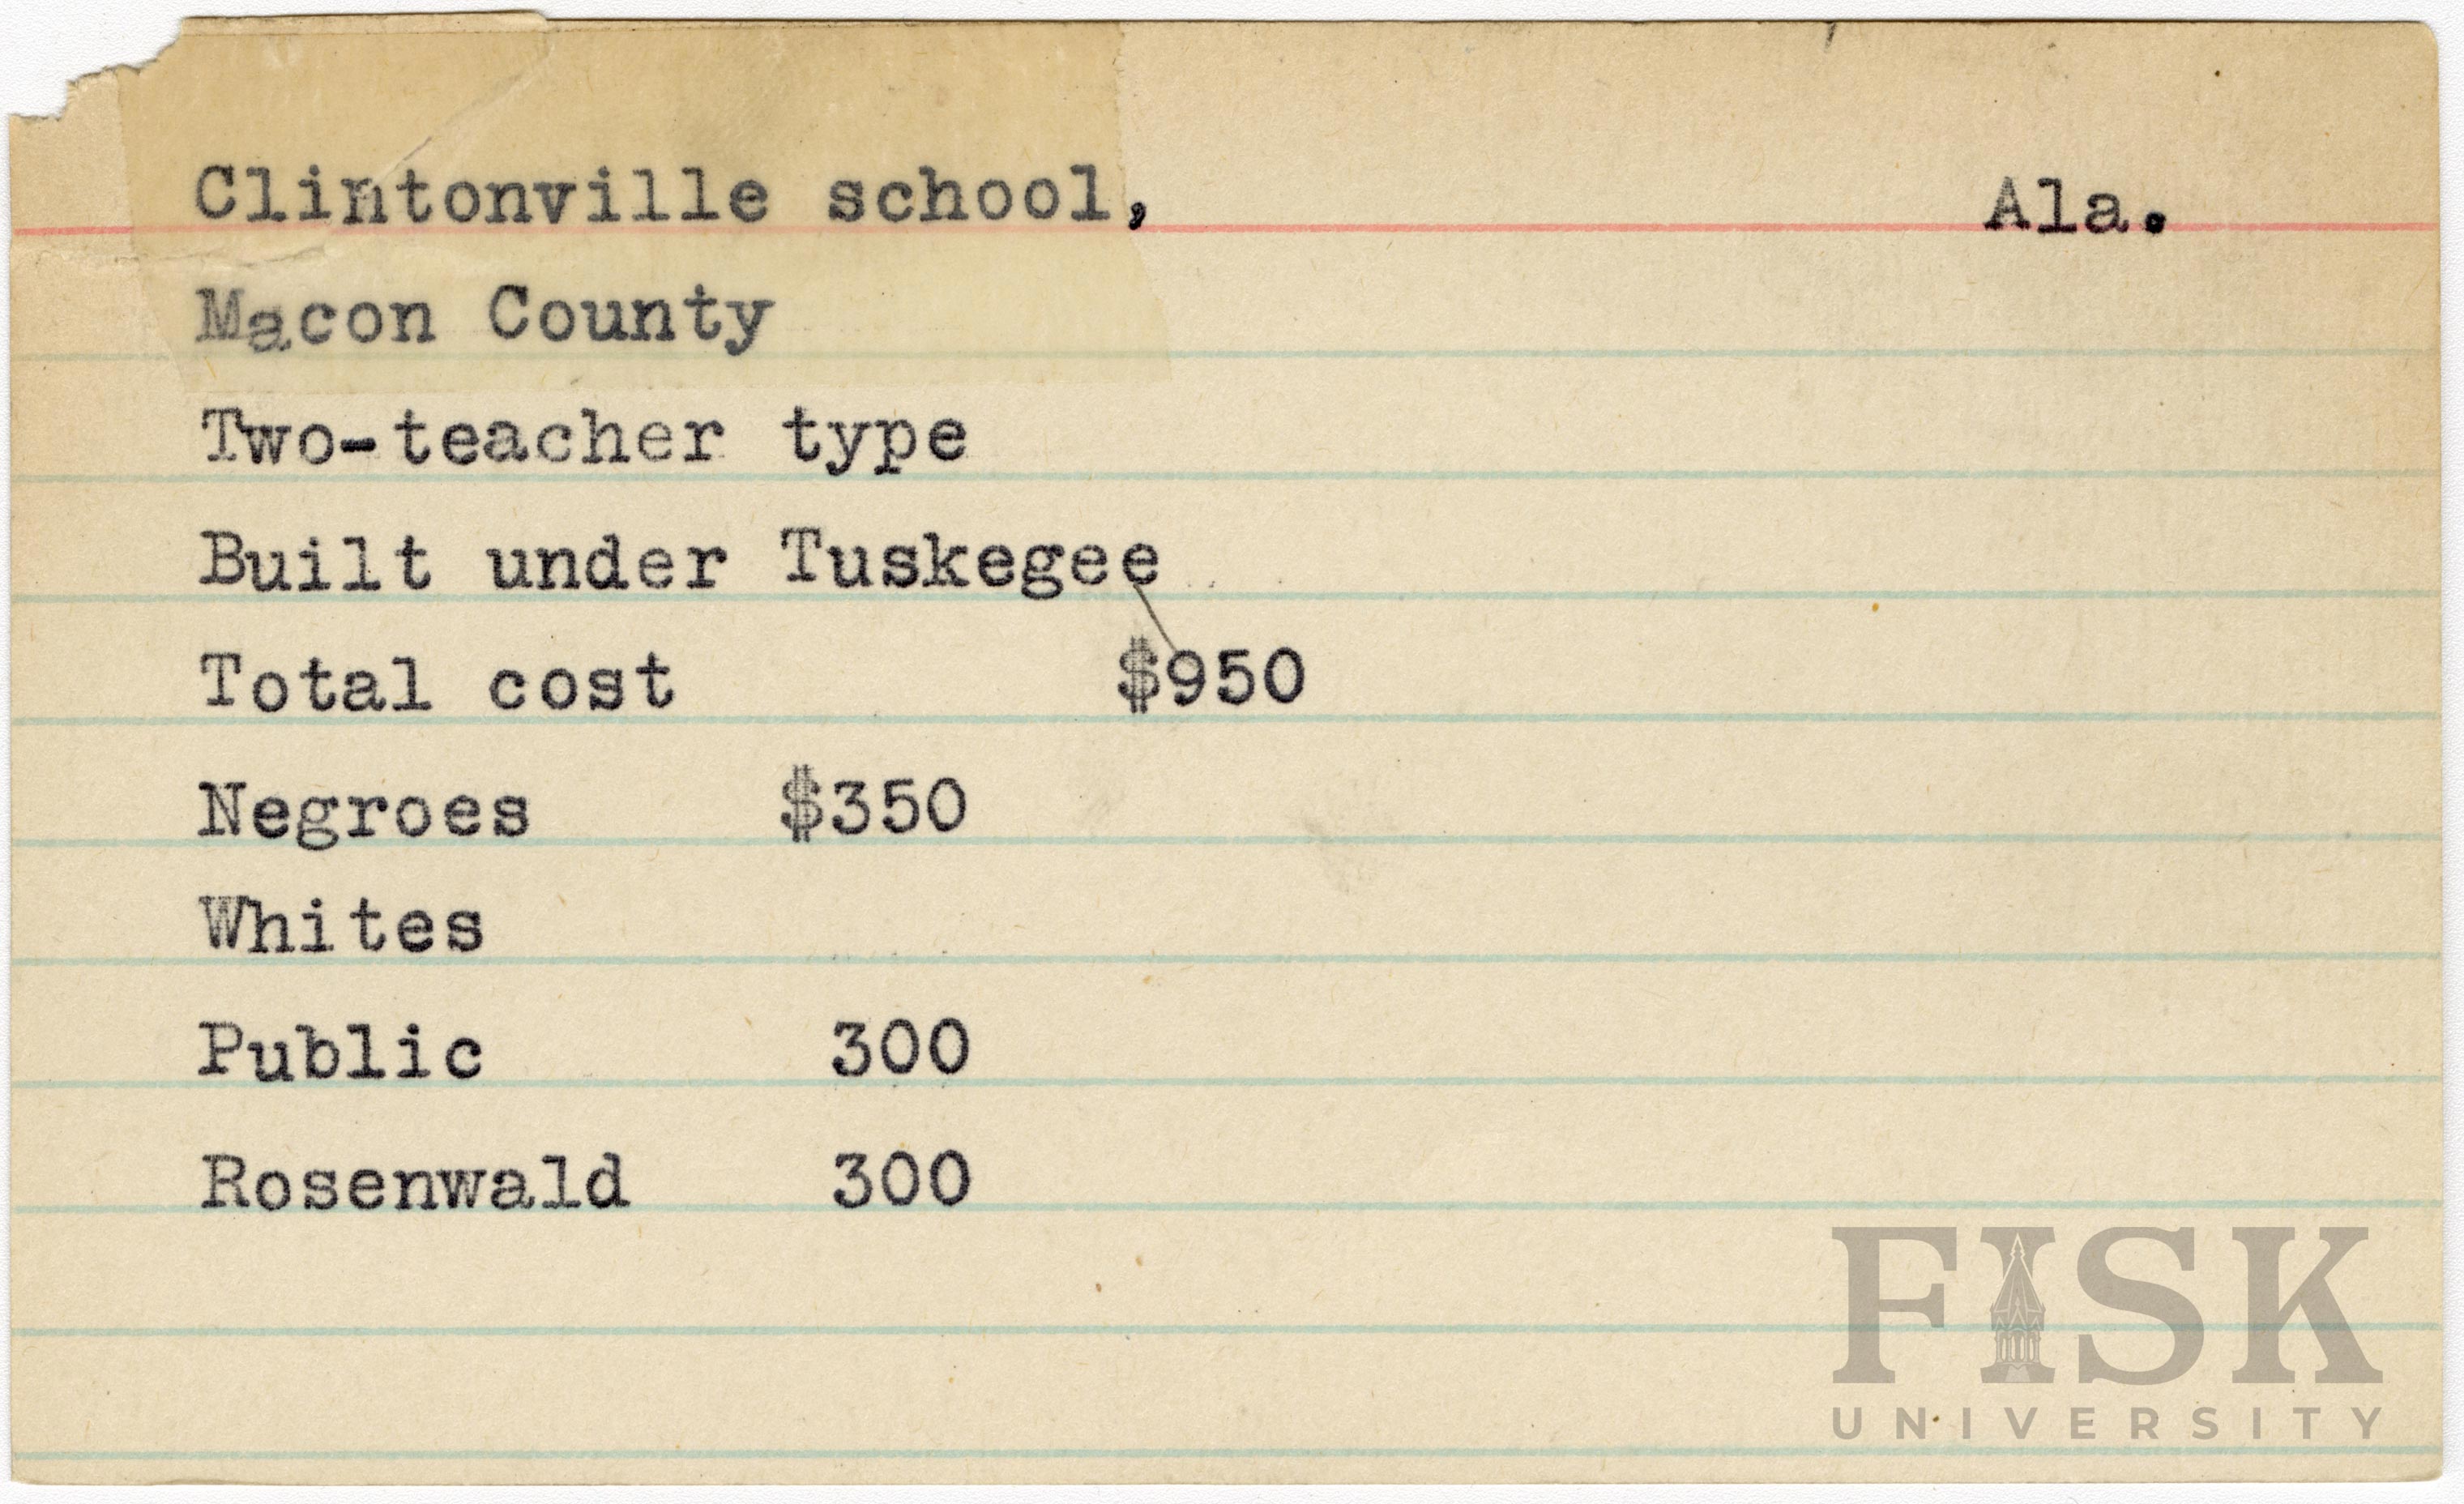 Clintonville school, Ala.
Macon County
Two-teacher type
Built under Tuskegee
Total cost $950
Negroes $350
Whites
Public 300
Rosenwald 300
FISK
UNIVERSITY